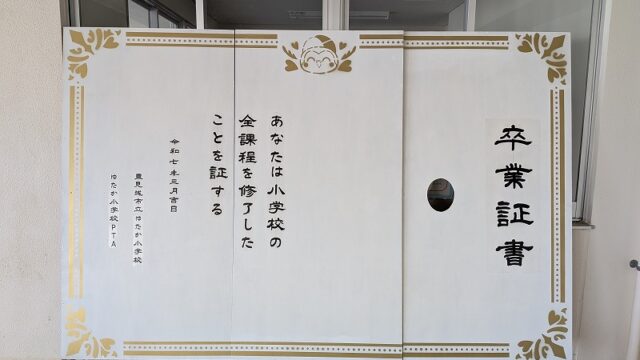 卒業証書
あなたは小学校の
全課程を修了した
ことを証する
令和七年三月吉日
豊見城市立ゆたか小学校
ゆたか小学校PTA